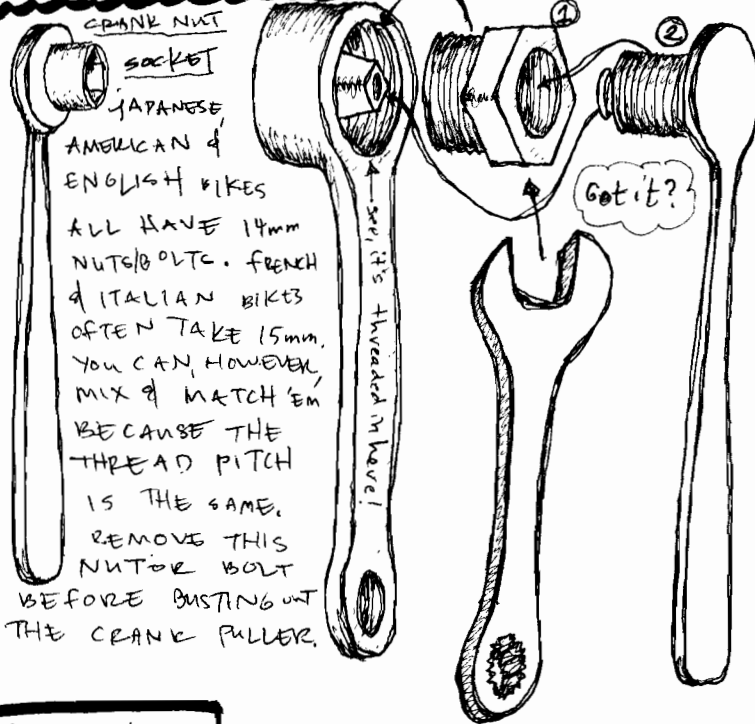 CRANK NUT
SOCKET
JAPANESE,
AMERICAN &
ENGLISH BIKES
ALL HAVE 14mm
NUTS/BOLTS. FRENCH
& ITALIAN BIKES
OFTEN TAKE 15mm.
YOU CAN, HOWEVER,
MIX & MATCH 'EM
BECAUSE THE
THREAD PITCH
IS THE SAME.
REMOVE THIS
NUT OR BOLT
BEFORE BUSTING OUT
THE CRANK PULLER.
see, it's threaded in here!
1
2
Got it?